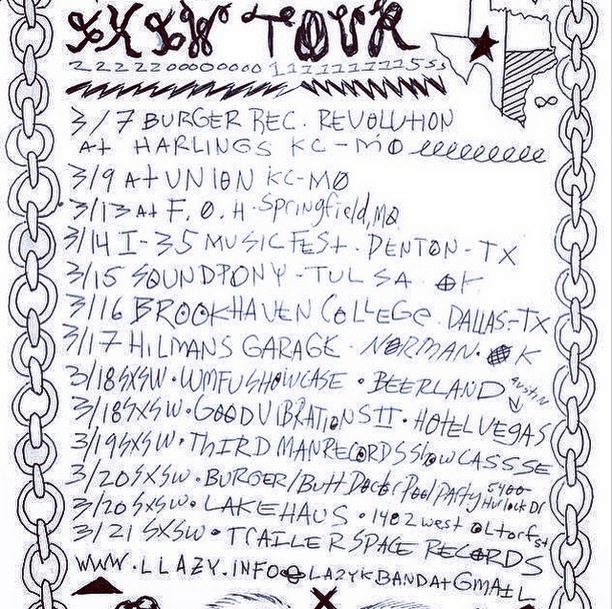 SXSW TOUR
222220000000011111111115555
3/7 BURGER REC. REVOLUTION
At HARLINGS KC-MO
3/9 At UNION KC-MO
3/13 At F.O.H. Springfield, MO
3/14 I-35 MUSIC FESt. DENTON-TX
3/15 SOUNDPONY-TULSA. OK
3/16 BROOKHAVEN COLLEGE. DALLAS-TX
3/17 HILMANS GARAGE. NORMAN. OK
3/18 SXSW. WMFU SHOWCASE. BEERLAND Austin
3/18 SXSW. GOOD VIBRATIONS II. HOTEL VEGAS
3/19 SXSW. THIRD MAN RECORDS SHOW CASSSE
3/20 SXSW. BURGER/Butt Doctor Pool Party 5400 Hurlock Dr
3/20 SXSW. LAKE HAUS. 1402 west Oltorf st
3/21 SXSW. TRAILER SPACE RECORDS
WWW.LLAZY.INFO LAZYKBANDAt GMAIL